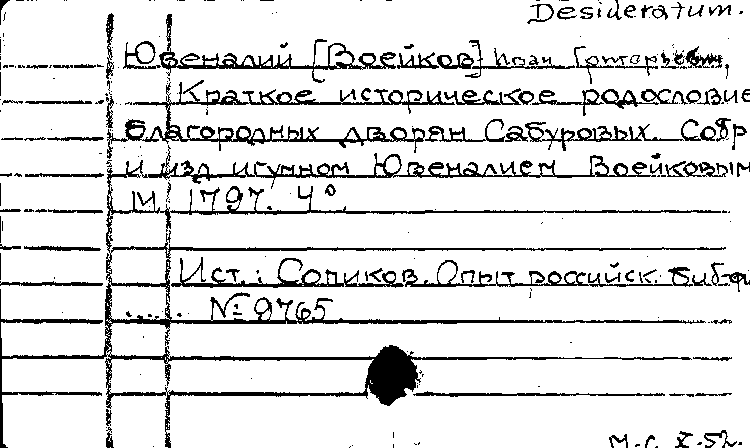 Desideratum.
Ювеналий [Воейков] Иоан Григорьевич,
Краткое историческое родословие
благородных дворян Сабуровых. Собр
и изд игумном Ювеналием Воейковым
М. 1797. 4°.
Ист.: Сопиков. Опыт российск. биб-фи
...... № 9765.
М.С. X.52.